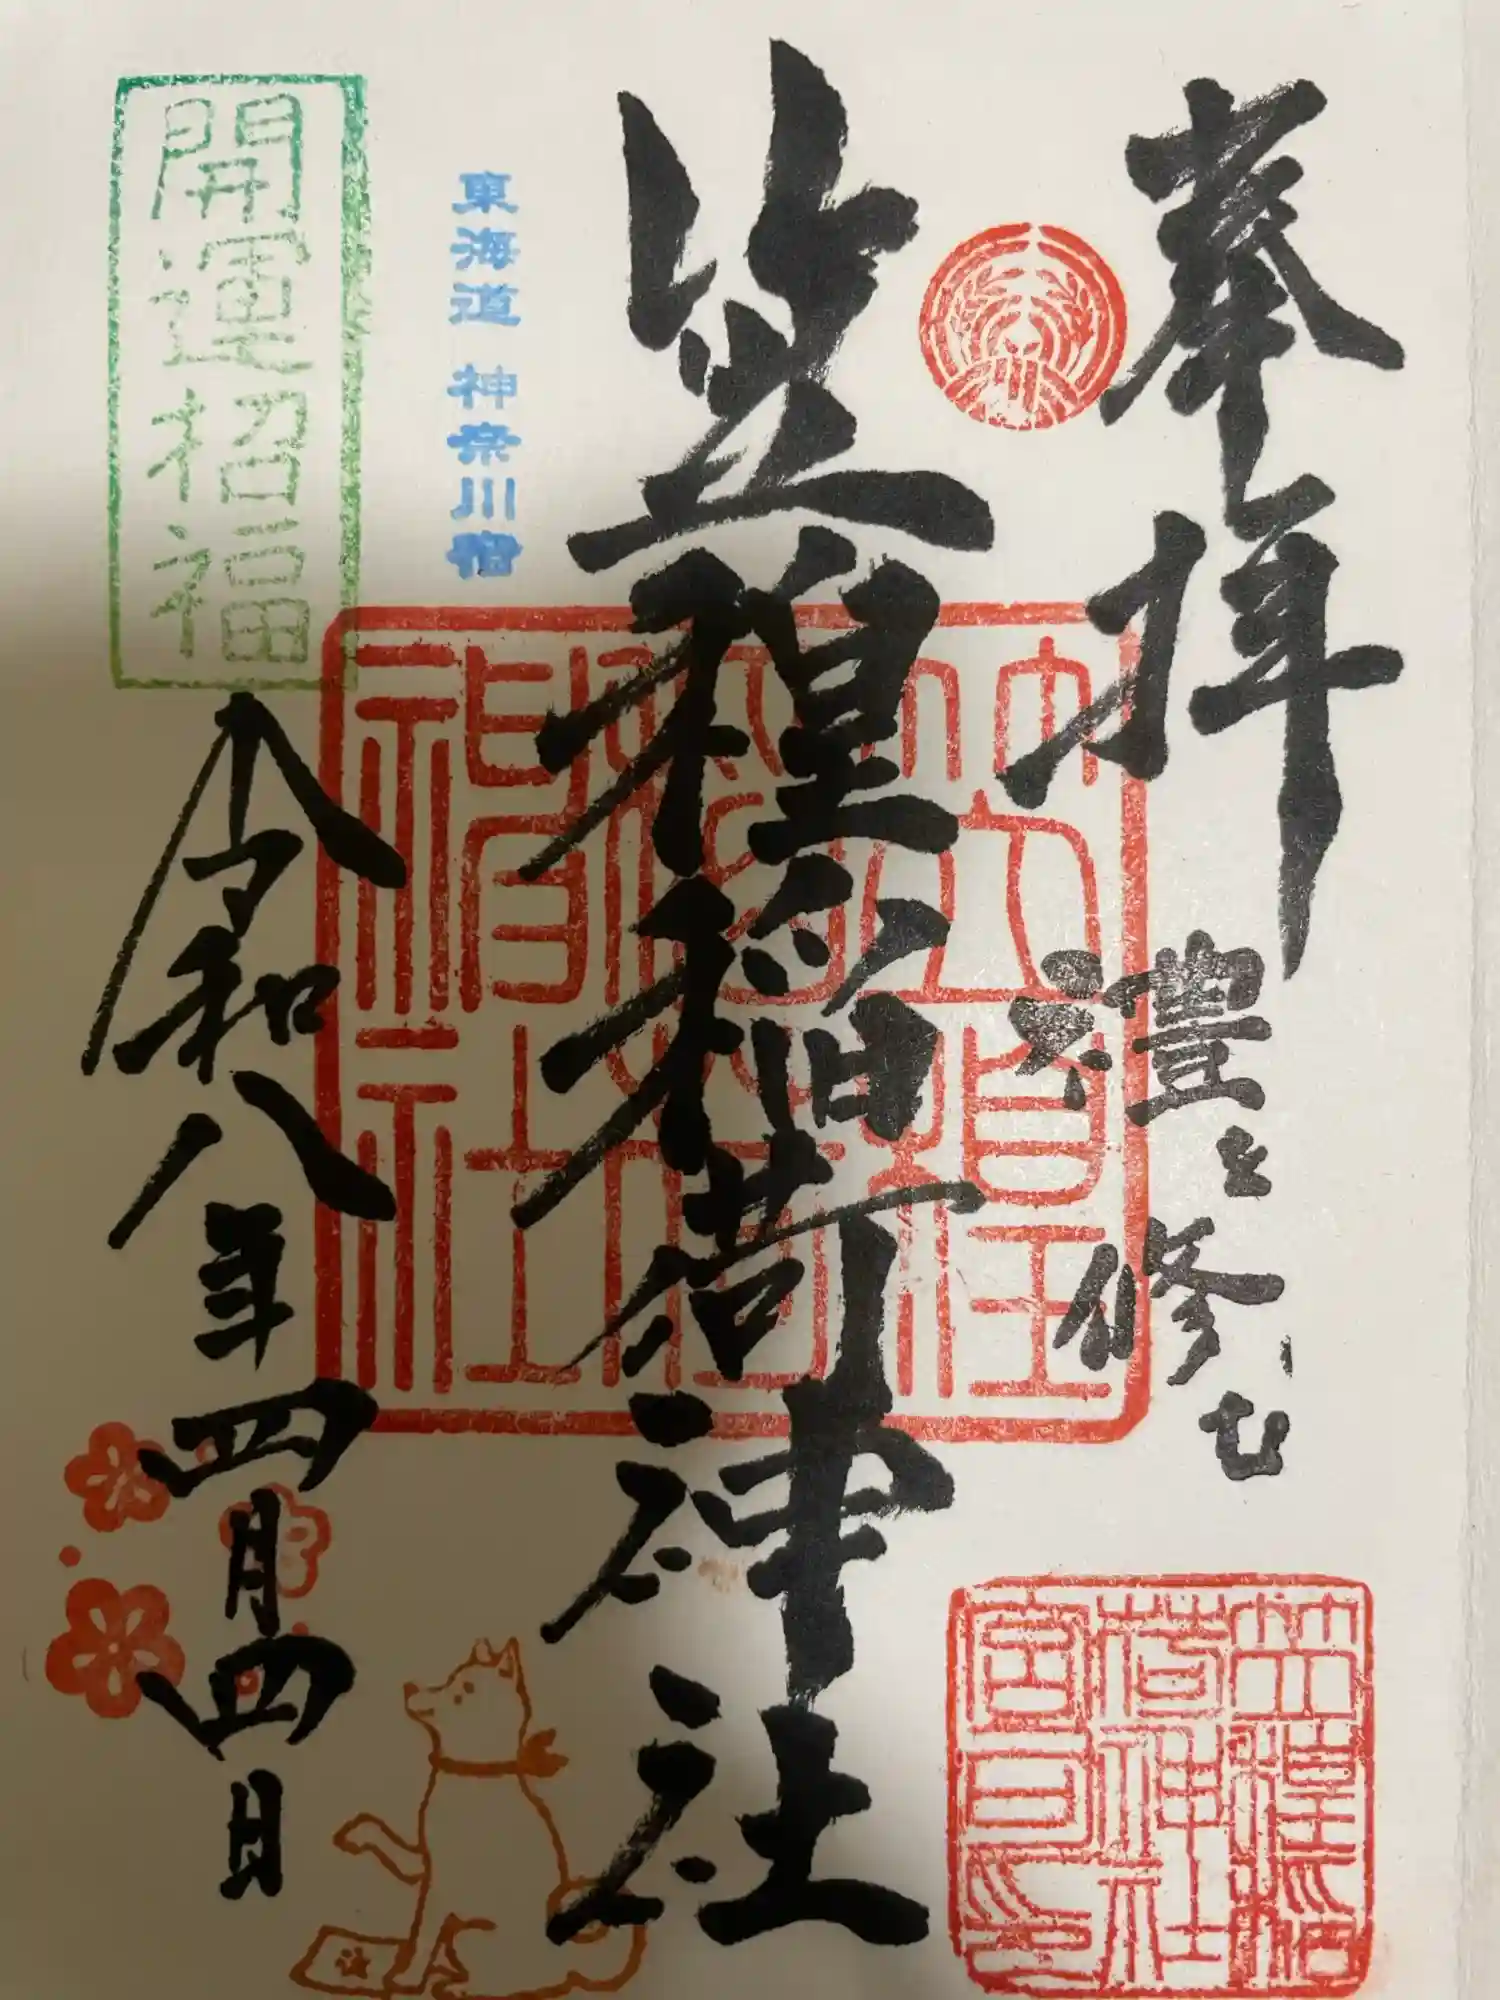 奉拝
禮を修む
笠䅣稲荷神社
東海道 神奈川宿
開運招福
令和八年四月四日
笠䅣
稲荷
神社
笠䅣稲
荷神社
宮司印